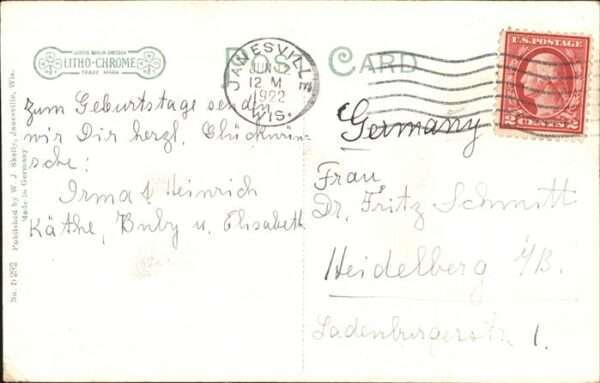 LEIPZIG BERLIN DRESDEN
LITHO-CHROME
TRADE MARK
POST CARD
JANESVILLE
JUN 12
12 M
1922
WIS.
U.S. POSTAGE
2 CENTS 2
zum Geburtstage senden
wir Dir herzl. Glückwün-
sche:
Irma & Heinrich
Käthe, Buby u. Elisabeth
Germany
Frau
Dr. Fritz Schmitt
Heidelberg i/B.
Ladenburgerstr. 1.
No. D 282 Published by W. J. Skelly, Janesville, Wis.
Made in Germany